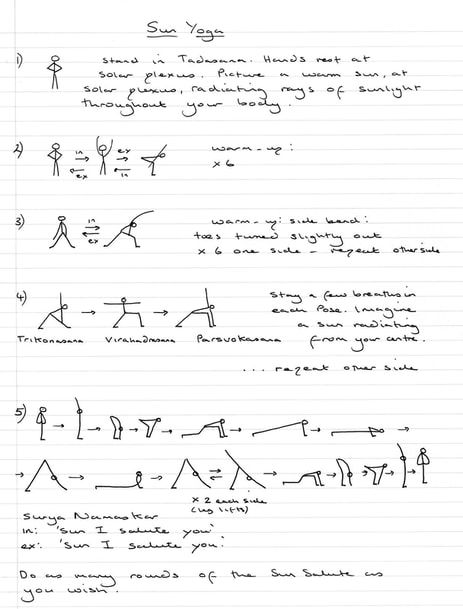 Sun Yoga
1) Stand in Tadasana. Hands rest at
solar plexus. Picture a warm sun, at
solar plexus, radiating rays of sunlight
throughout your body.
2) in ex warm-up:
ex in x 6
3) in warm-up: side bend:
ex toes turned slightly out
x 6 one side - repeat other side
4) Stay a few breaths in
each pose. Imagine
a sun radiating
Trikonasana Virahadrasana Parsvokasana from your centre.
... repeat other side
5)
x 2 each side
(leg lifts)
Surya Namaskar
in: 'Sun I salute you'
ex: 'Sun I salute you'
Do as many rounds of the Sun Salute as
you wish.